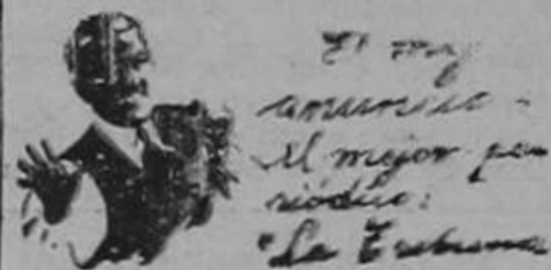 El mej
anuncio -
el mejor pe
riódico:
"La Tribuna